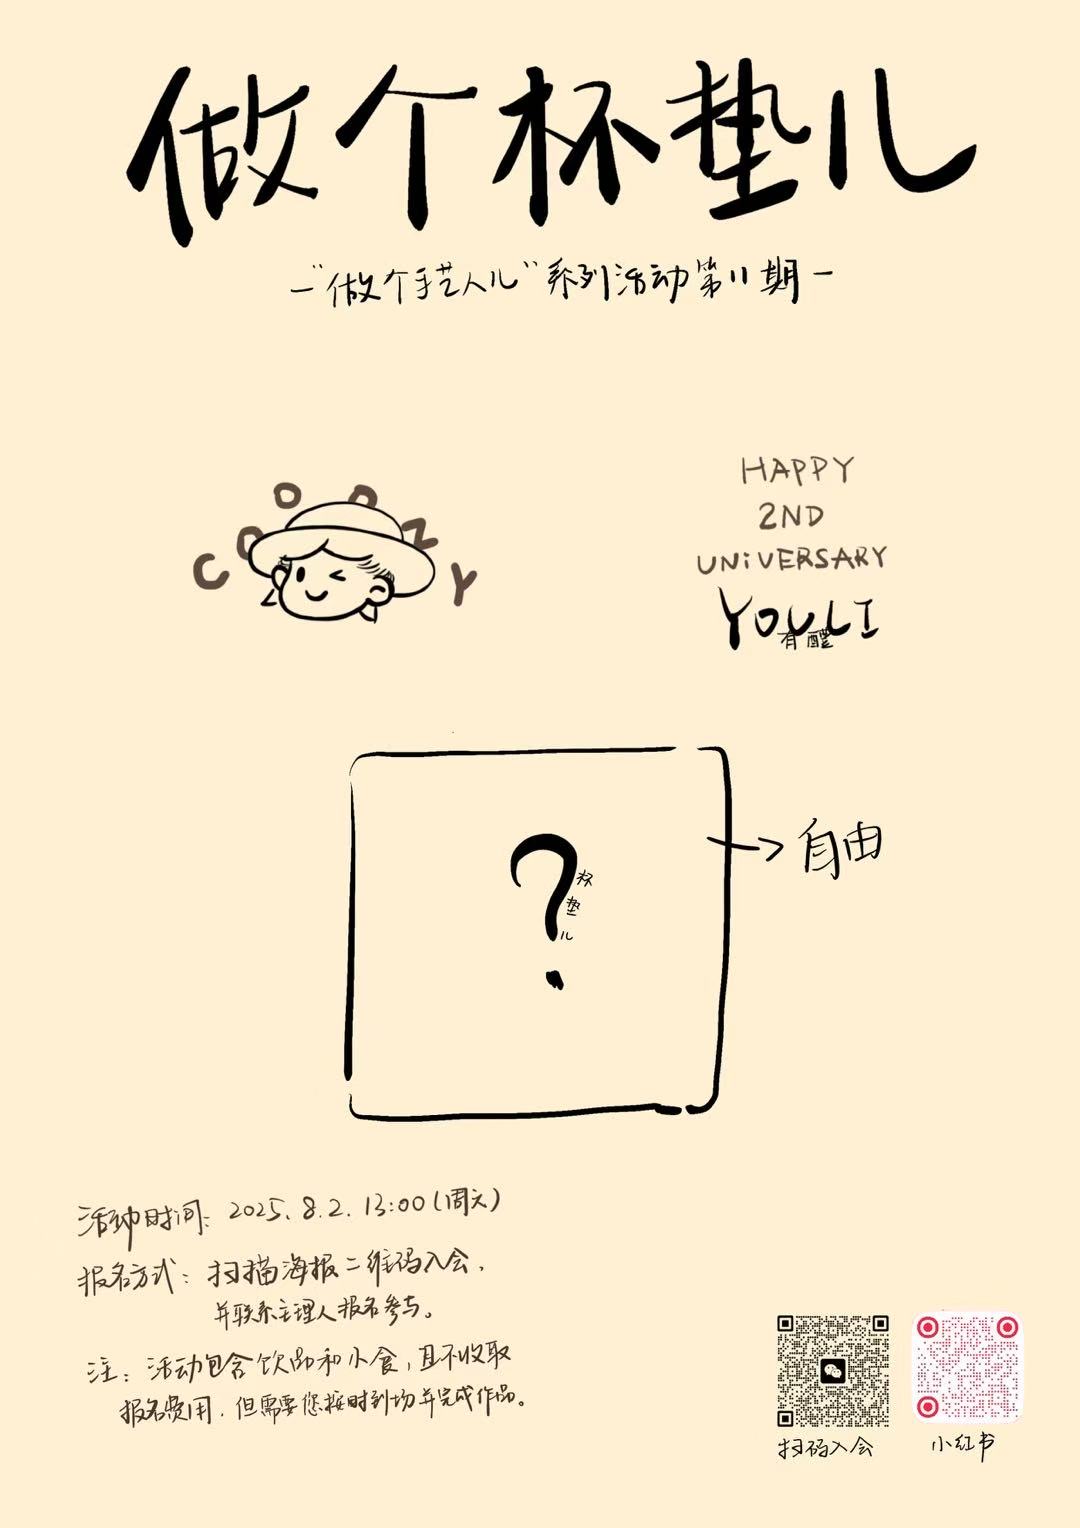 做个杯垫儿
—“做个手艺人儿”系列活动第11期—
COOOOZY
HAPPY
2ND
UNiVERSARY
YOULI
有醴
?
杯垫儿
自由
活动时间: 2025.8.2. 13:00(周六)
报名方式: 扫描海报二维码入会,
并联系主理人报名参与。
注: 活动包含饮品和小食,且不收取
报名费用,但需要您按时到场并完成作品。
扫码入会
小红书